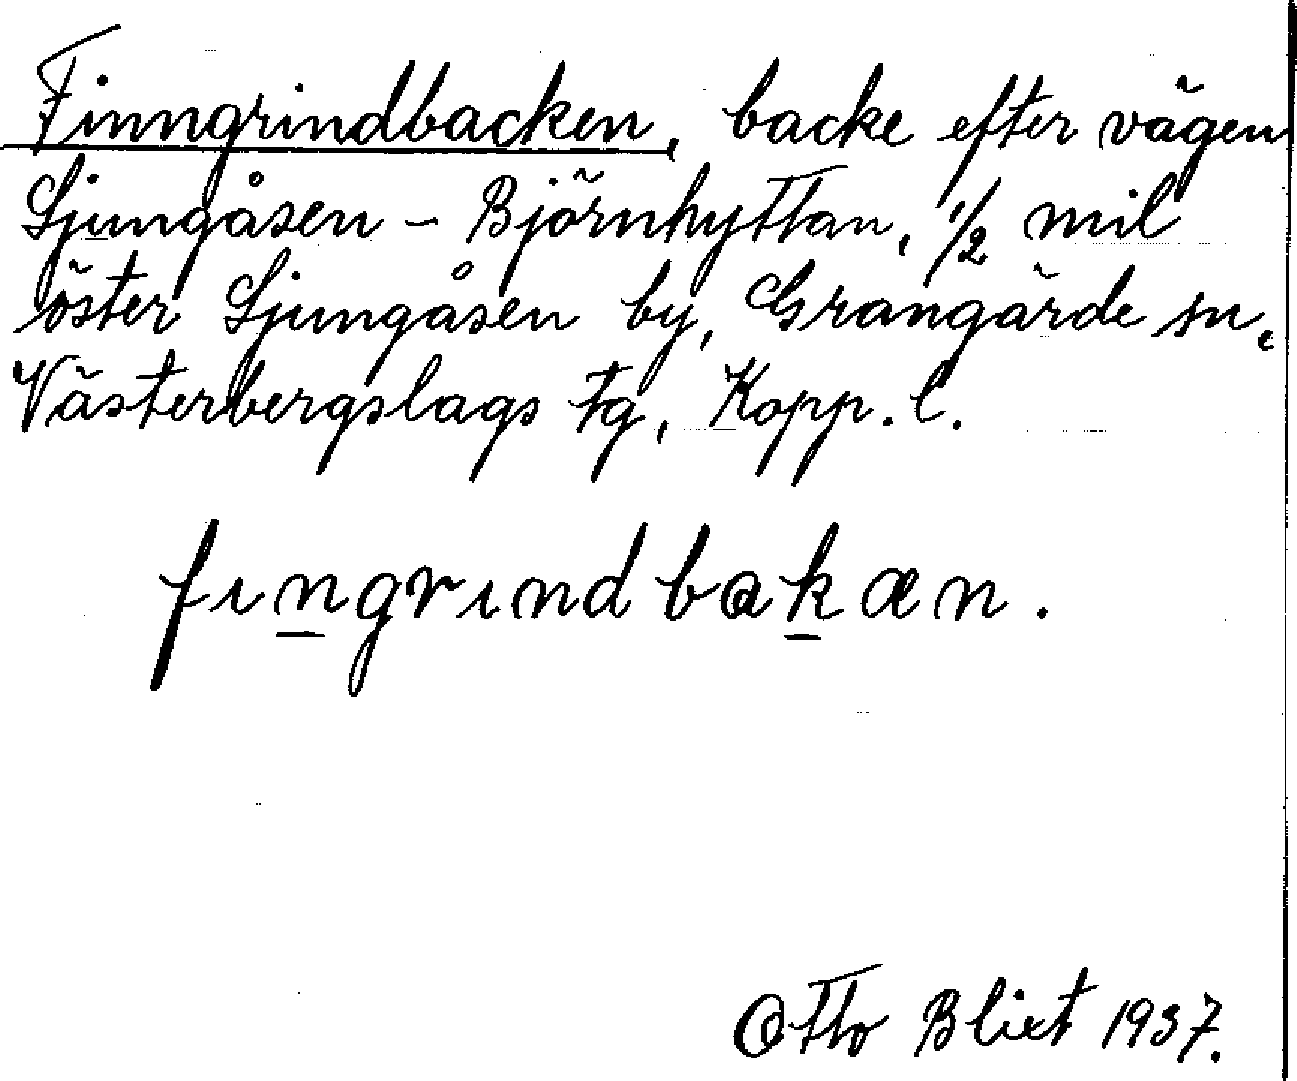 Finngrindbacken, backe efter vägen
Ljungåsen – Björnhyttan, 1/2 mil
öster Ljungåsen by, Grangärde sn,
Västerbergslags tg, Kopp. l.
fıṉgrındbaḵæn.
Otto Blixt 1937.